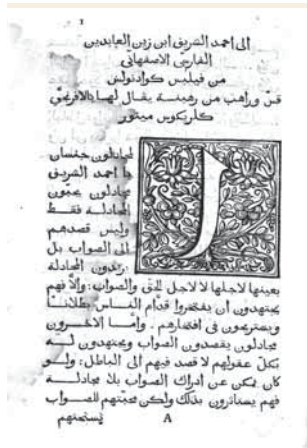 1
الى احمد الشريف ابن زين العابدين
الفارسي الاصفهاني
من فيلبس كوادنولس
قس وراهب من رهبنة يقال لها بالافرنجي
كلريكوس مينور
المجادلون جنسان
يا احمد الشريف
مجادلون يحبون
المجادلة فقط
وليس قصدهم
الى الصواب بل
يريدون المجادلة
بعينها لاجلها لا لاجل الحق والصواب: والا فهم
يجتهدون ان يفتخروا قدام الناس بطلانا
ويستريحون في افتخارهم. واما الاخرون
مجادلون يقصدون الصواب ويجتهدون له
بكل عقولهم لا قصد فيهم الى الباطل: ولو
كان يمكن عن ادراك الصواب بلا مجادلة
فهم بذلك ولكن محبتهم للصواب
A